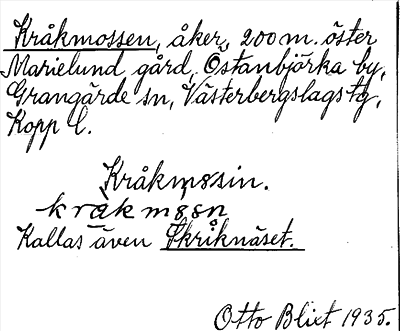 Kråkmossen, åker, 200 m. öster
Marielund gård, Östanbjörka by,
Grangärde sn, Västerbergslags tg,
Kopp l.
Kråkmosin.
kråkmosn
Kallas även Skriknäset.
Otto Blixt 1935.